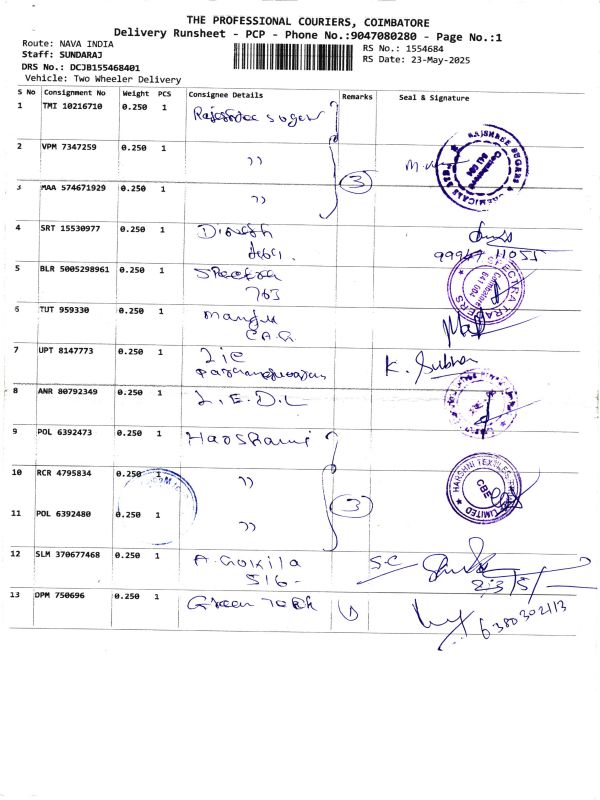 THE PROFESSIONAL COURIERS, COIMBATORE
Delivery Runsheet - PCP - Phone No.:9047080280 - Page No.:1
Route: NAVA INDIA
RS No.: 1554684
Staff: SUNDARAJ
RS Date: 23-May-2025
DRS No.: DCJB155468401
Vehicle: Two Wheeler Delivery
S No Consignment No Weight PCS Consignee Details Remarks Seal & Signature
1 TMI 10216710 0.250 1
2 VPM 7347259 0.250 1 ))
3 MAA 574671929 0.250 1 ))
3
RAJSHREE SUGARS & CHEMICALS
Coimbatore
641 004
4 SRT 15530977 0.250 1 Dinesh
5 BLR 5005298961 0.250 1 Spectra
763
SPECTRA TRADERS
Coimbatore
641 004
6 TUT 959330 0.250 1 manju
7 UPT 8147773 0.250 1 LIC
K. Subha
8 ANR 80792349 0.250 1 L.E.D.L
9 POL 6392473 0.250 1
10 RCR 4795834 0.250 1 ))
11 POL 6392480 0.250 1 ))
3
HARSHNI TEXTILES LIMITED
CBE
12 SLM 370677468 0.250 1 A. Gokila
516-
S.C
23/5/
13 DPM 750696 0.250 1 Green Tech
6380302113